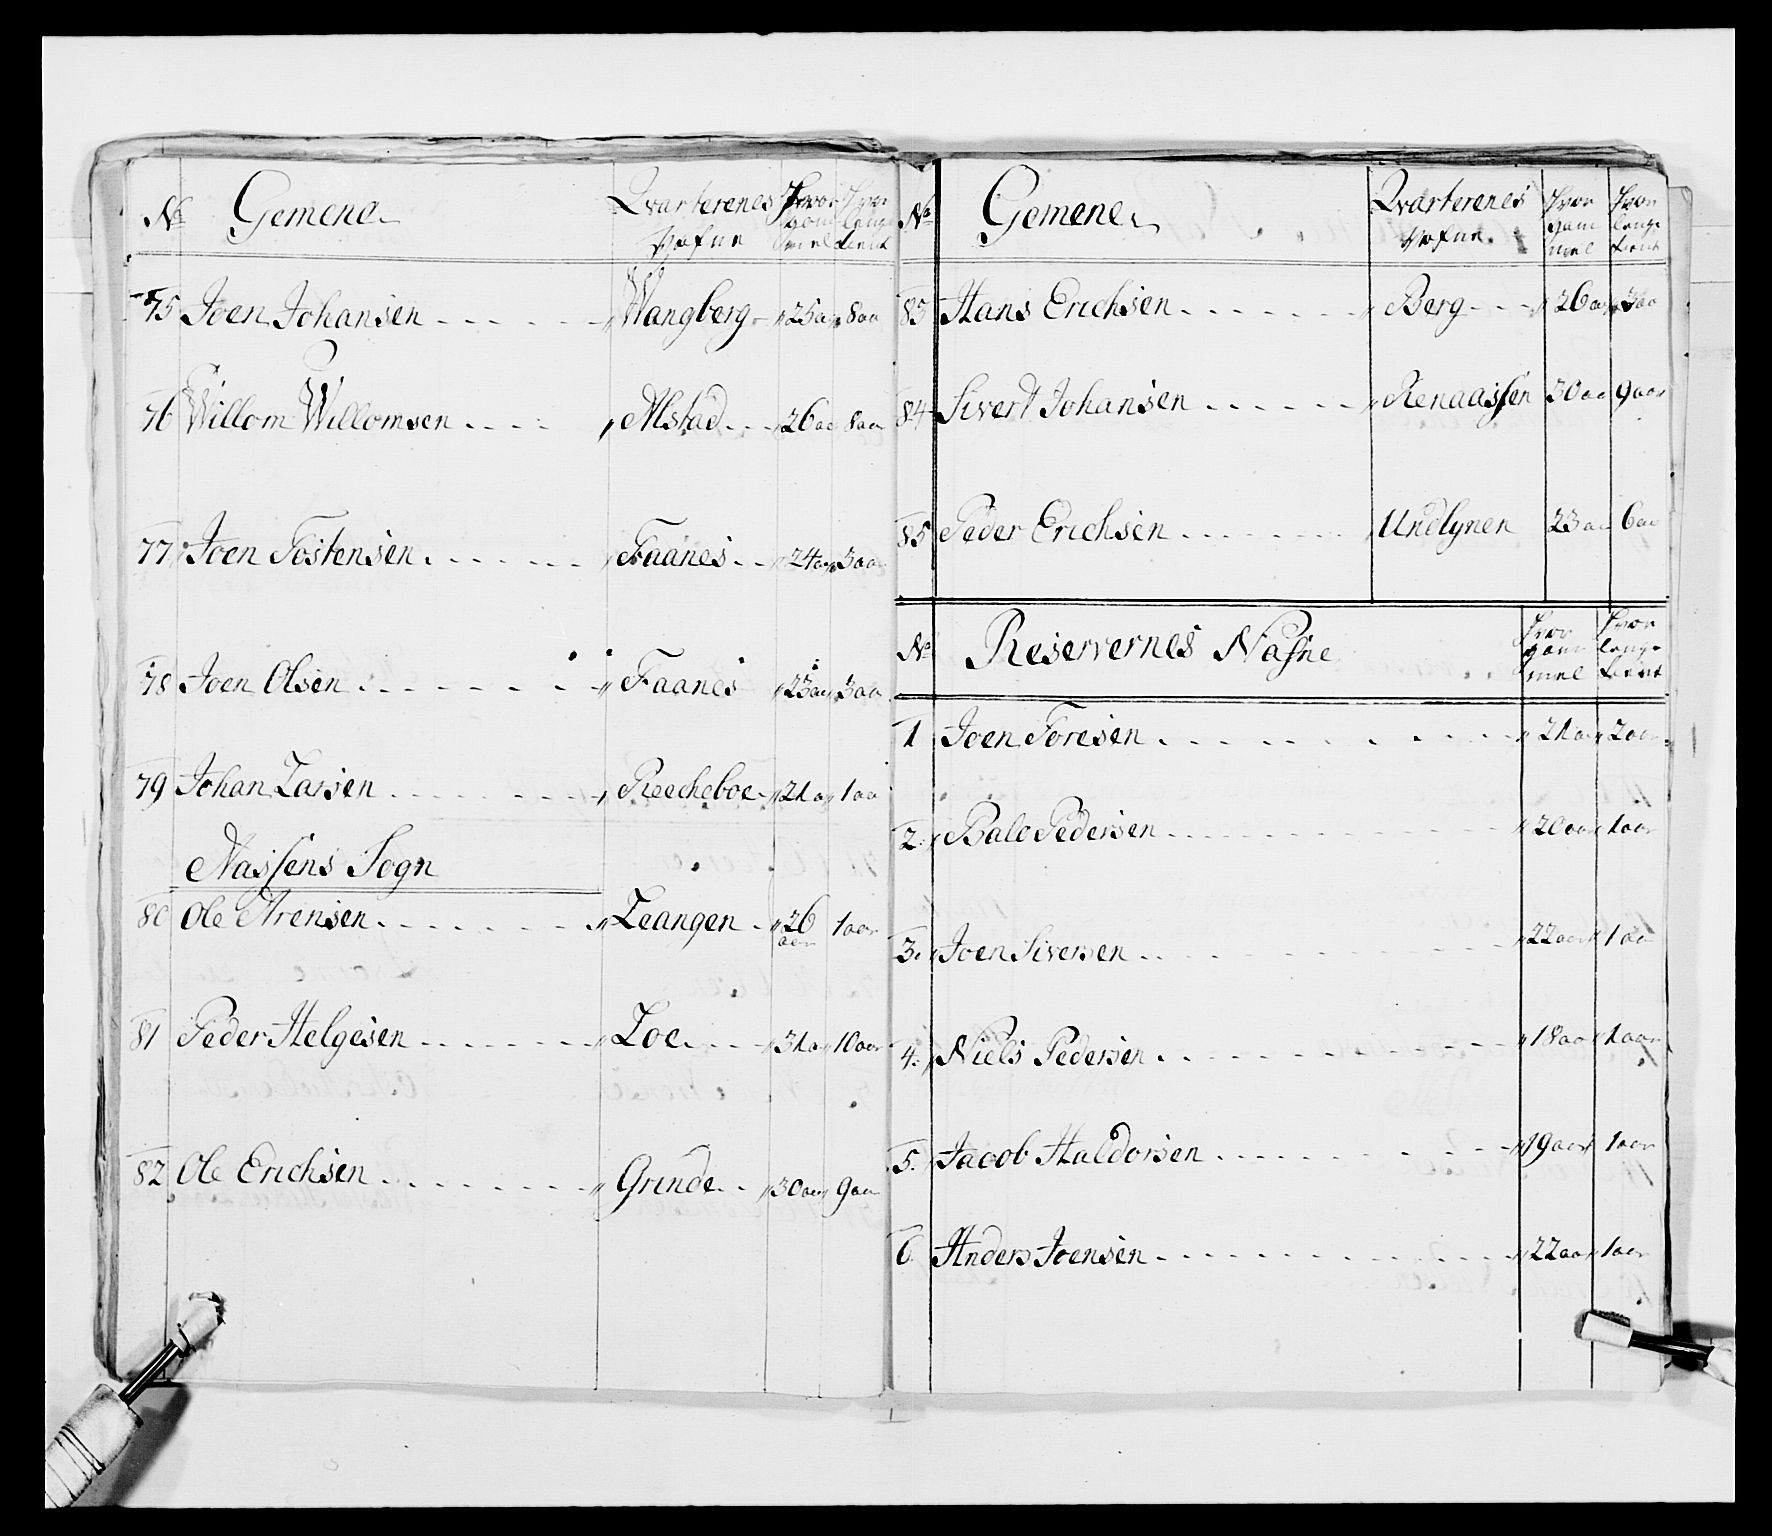 No Gemene Qvarterenes Nafne Hvor gammel Hvor lenge tient
75 Joen Johansen Wangberg 25 aar 8 aar
76 Willom Willomsen Alstad 26 aar 8 aar
77 Joen Tostensen Faanes 24 aar 3 aar
78 Joen Olsen Faanes 23 aar 3 aar
79 Johan Larsen Reecheboe 21 aar 1 aar
Nassens Sogn
80 Ole Arensen Leangen 26 aar 1 aar
81 Peder Helgesen Loe 31 aar 10 aar
82 Ole Erichsen Grinde 30 aar 9 aar
No Gemene Qvarterenes Nafne Hvor gammel Hvor lenge tient
83 Hans Erichsen Berg 26 aar 3 aar
84 Sivert Johansen Renaassen 30 aar 9 aar
85 Peder Erichsen Undlynen 23 aar 6 aar
No Reservernes Nafne Hvor gammel Hvor lenge tient
1 Joen Toresen 21 aar 2 aar
2. Bale Pedersen 20 aar 1 aar
3. Joen Siversen 22 aar 1 aar
4. Niels Pedersen 18 aar 1 aar
5. Jacob Haldorsen 19 aar 1 aar
6. Anders Joensen 22 aar 1 aar